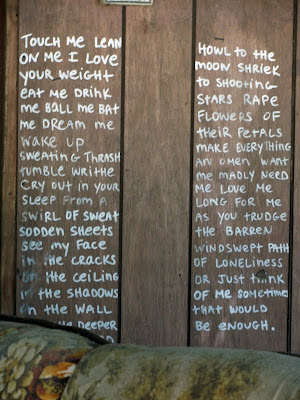 TOUCH ME LEAN
ON ME I LOVE
YOUR WEIGHT
EAT ME DRINK
ME BALL ME BAT
ME DREAM ME
WAKE UP
SWEATING THRASH
TUMBLE WRITHE
CRY OUT IN YOUR
SLEEP FROM A
SWIRL OF SWEAT
SODDEN SHEETS
SEE MY FACE
IN THE CRACKS
ON THE CEILING
IN THE SHADOWS
ON THE WALL
DEEPER
HOWL TO THE
MOON SHRIEK
TO SHOOTING
STARS RAPE
FLOWERS OF
THEIR PETALS
MAKE EVERYTHING
AN OMEN WANT
ME MADLY NEED
ME LOVE ME
LONG FOR ME
AS YOU TRUDGE
THE BARREN
WINDSWEPT PATH
OF LONELINESS
OR JUST THINK
OF ME SOMETIME
THAT WOULD
BE ENOUGH.